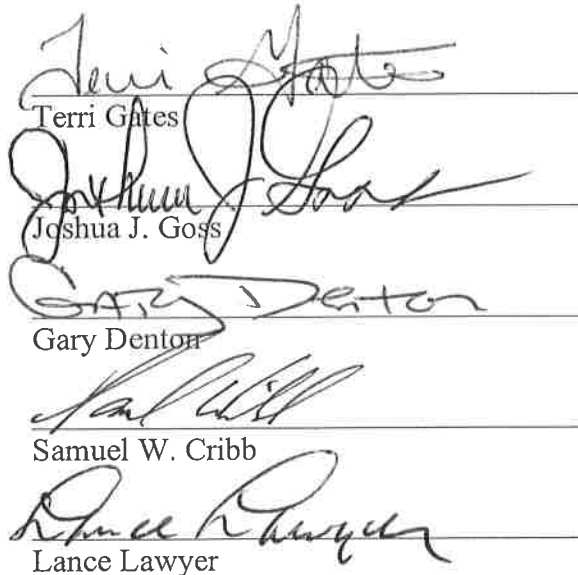 Terri Gates
Terri Gates
Joshua J Goss
Joshua J. Goss
Gary Denton
Gary Denton
Samuel W. Cribb
Lance Lawyer
Lance Lawyer